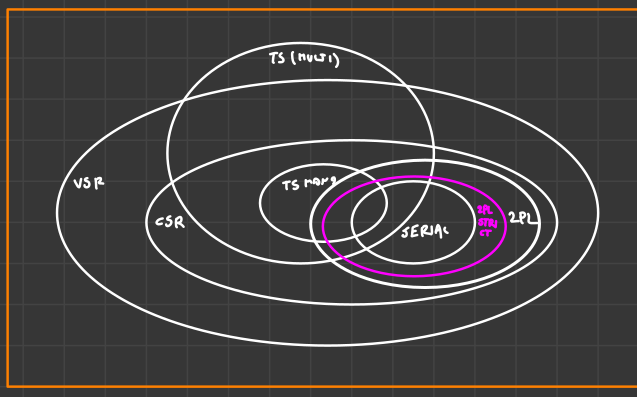 TS (MULTI)
VSR
TS MONO
CSR
SERIAL
2PL
STRI
CT
2PL